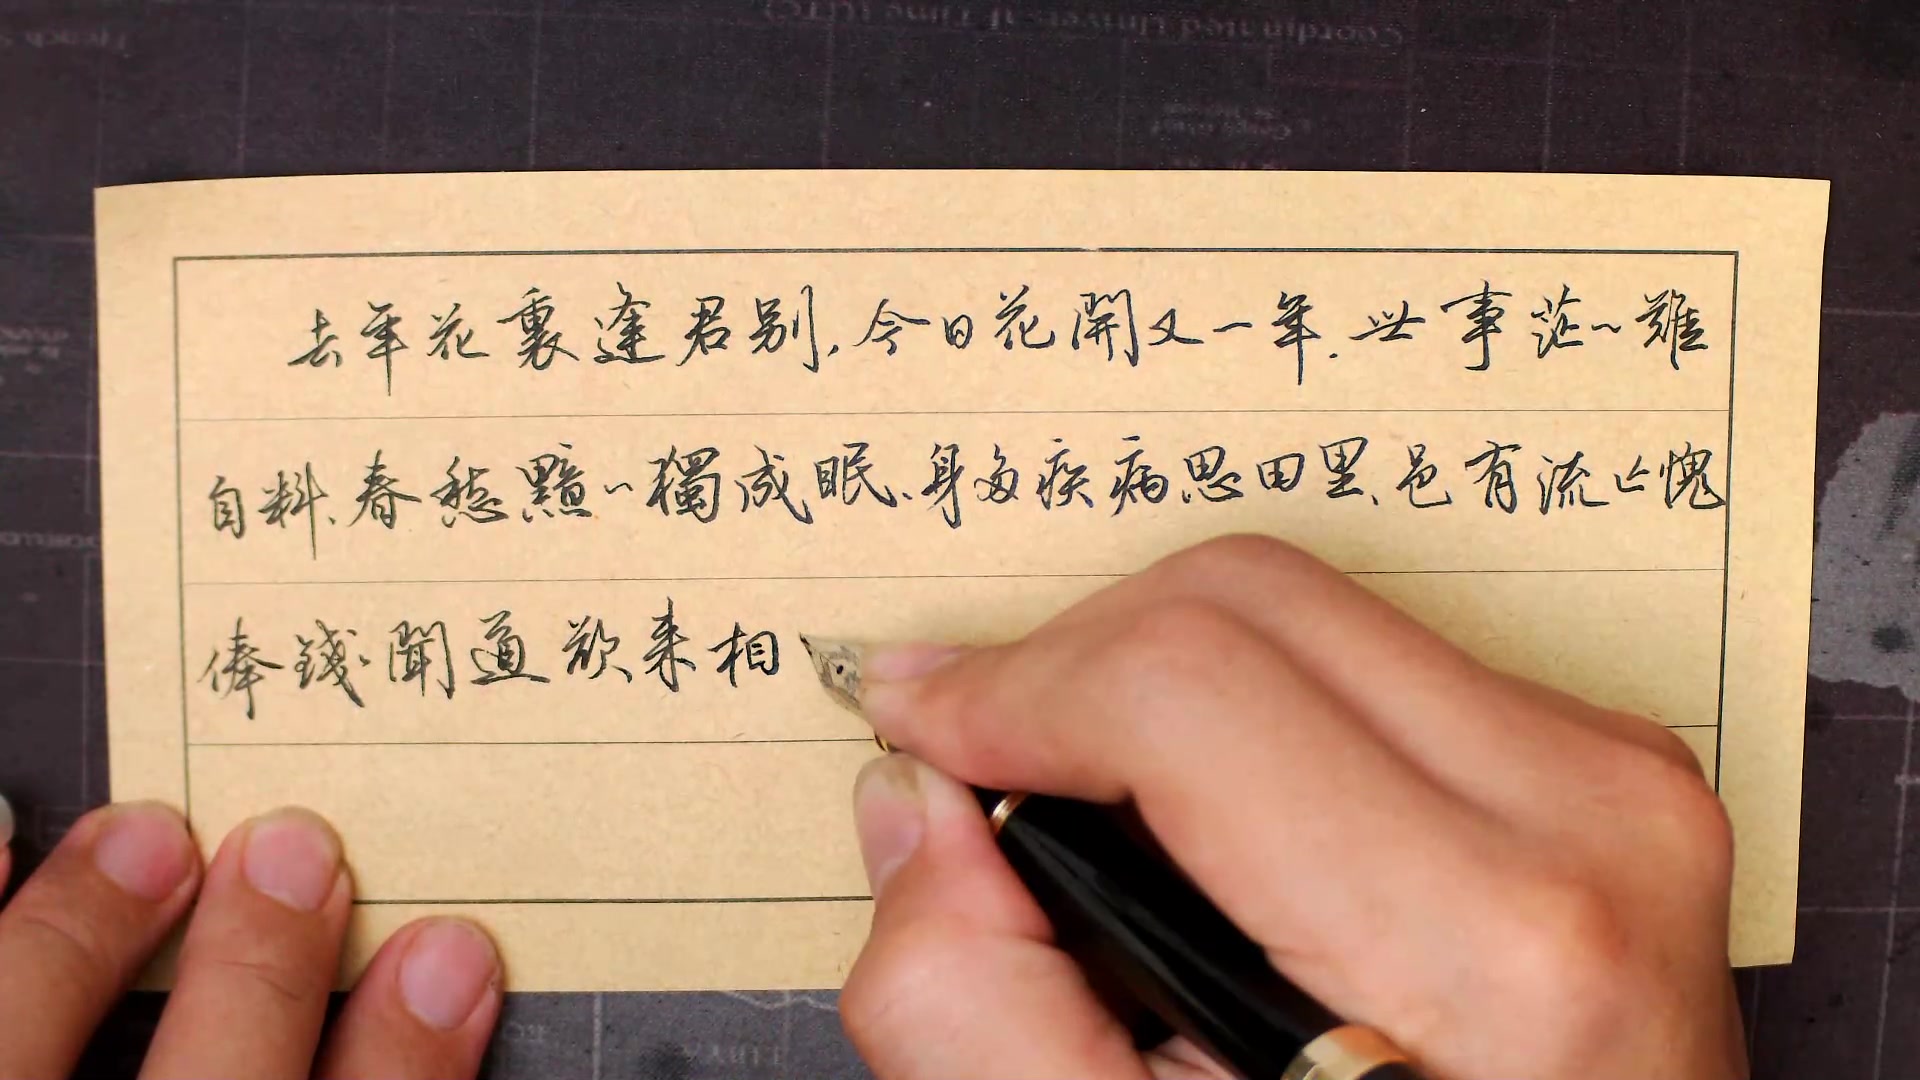 去年花裏逢君别,今日花開又一年.世事茫~難
自料、春愁黯~獨成眠、身多疾病思田里、邑有流亡愧
俸錢.聞道欲来相
Coordinated Universal Time (UTC)